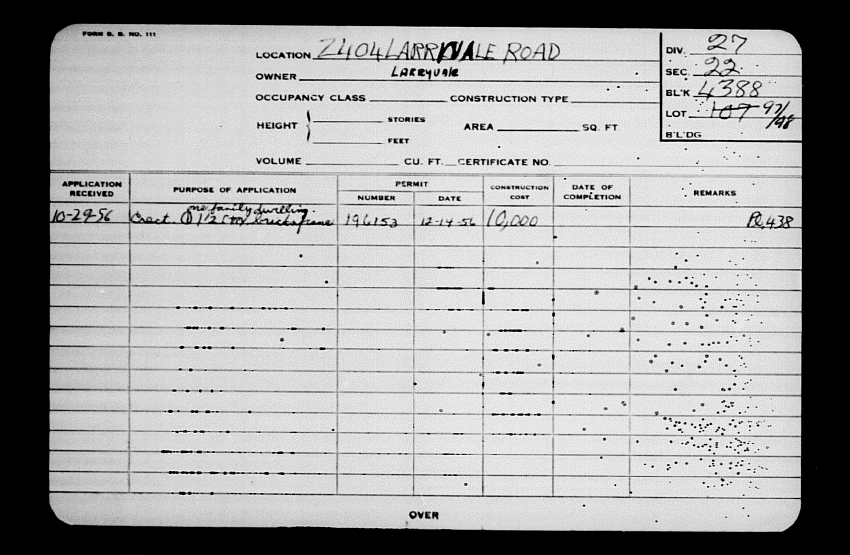 FORM B. B. NO. 111
LOCATION 2404 LARRYVALE ROAD
OWNER LARRYVALE
OCCUPANCY CLASS CONSTRUCTION TYPE
HEIGHT STORIES
FEET
AREA SQ. FT.
VOLUME CU. FT. CERTIFICATE NO.
DIV. 27
SEC. 22
BL'K 4388
LOT 107 97/98
B'L'DG
APPLICATION RECEIVED PURPOSE OF APPLICATION PERMIT NUMBER DATE CONSTRUCTION COST DATE OF COMPLETION REMARKS
one family dwelling.
10-29-56 Erect. 1 1/2 story brick & frame 196153 12-14-56 10,000 438
OVER